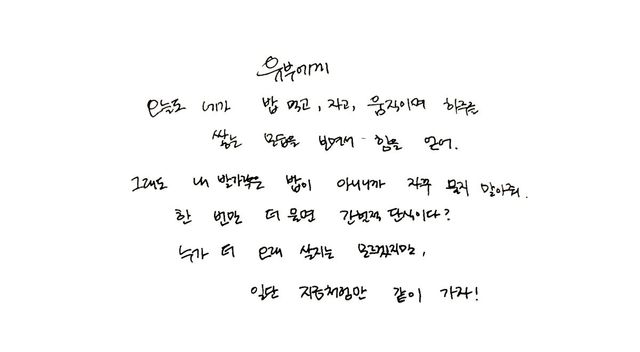 유부에게
오늘도 네가 밥 먹고, 자고, 움직이며 하루를
쌓는 모습을 보면서 힘을 얻어.
그래도 내 발가락은 밥이 아니니까 자꾸 물지 말아줘.
한 번만 더 물면 간헐적 단식이다?
누가 더 오래 살지는 모르겠지만,
일단 지금처럼만 같이 가자!